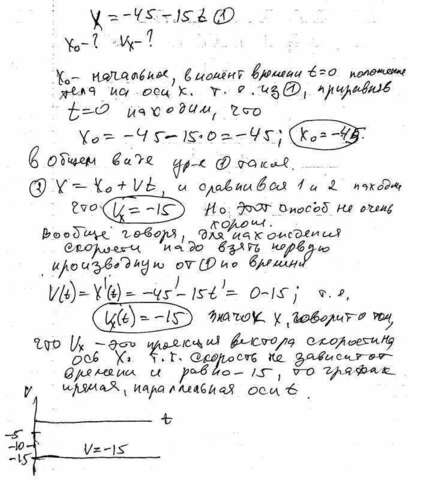 X = -45 - 15t ①
X₀-? Vₓ-?
X₀ - начальное, в момент времени t=0 положение
тела на оси X. т.о. из ①, приравняв
t=0 находим, что
X₀ = -45 - 15·0 = -45; X₀ = -45.
в общем виде ур-е ① такое.
② X = X₀ + Vt, и сравнивая 1 и 2 находим
что Vₓ = -15 Но этот способ не очень
хорош.
Вообще говоря, для нахождения
скорости надо взять первую
производную от ① по времени
V(t) = X'(t) = -45' - 15t' = 0 - 15; т.е.
Vₓ(t) = -15 значок X, говорит о том,
что Vₓ - это проекция вектора скорости на
ось X. т.к. скорость не зависит от
времени и равно -15, то график
прямая, параллельная оси t.
V
t
-5
-10
-15
V = -15